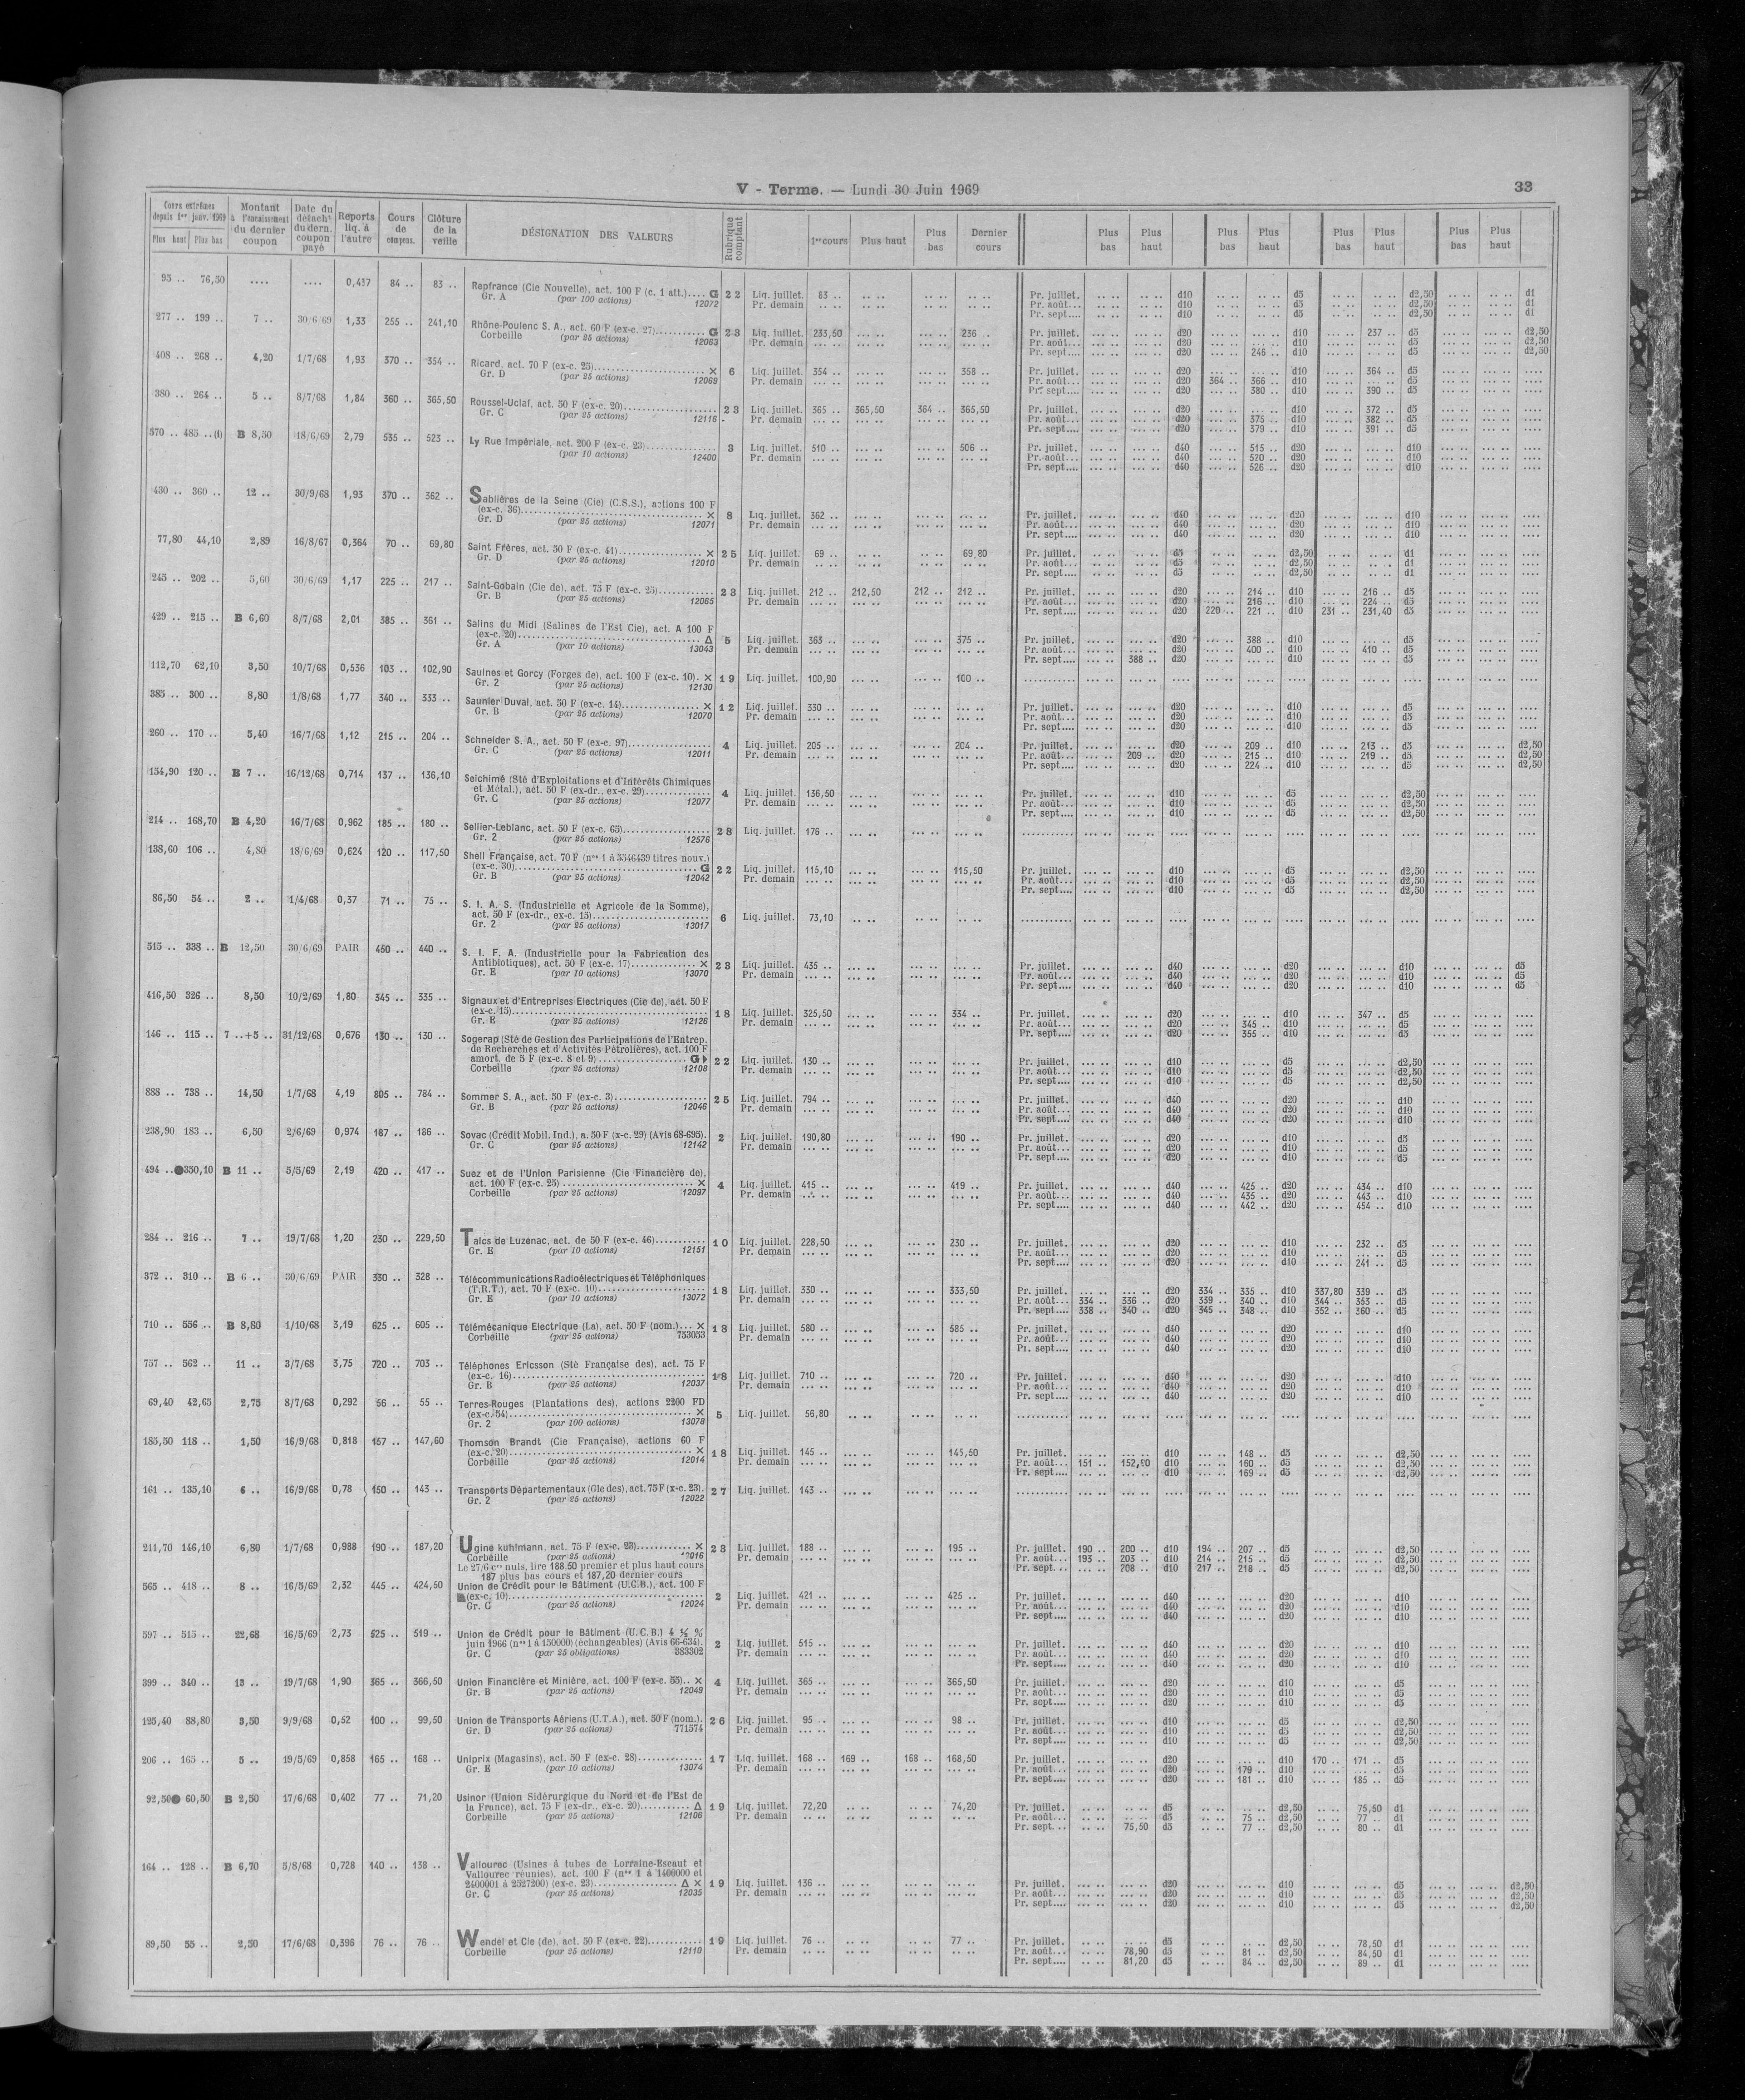 V - Terme. — Lundi 30 Juin 1969 33
Cours extrêmes depuis 1er janv. 1969 Plus haut Plus bas | Montant à l'encaissement du dernier coupon | Date du détacht du dern. coupon payé | Reports liq. à l'autre | Cours de compens. | Clôture de la veille | DÉSIGNATION DES VALEURS | Rubrique comptant | 1er cours | Plus haut | Plus bas | Dernier cours | Plus bas | Plus haut | Plus bas | Plus haut | Plus bas | Plus haut | Plus bas | Plus haut
95 .. 76,50 .... .... 84 .. 83 .. Repfrance (Cie Nouvelle), act. 100 F (c. 1 att.).... G 22 Liq. juillet. 83 .. Pr. juillet. d10 d5 d2,50 d1
Gr. A (par 100 actions) 12072 Pr. demain Pr. août... d10 d5 d2,50 d1
Pr. sept.... d10 d5 d2,50 d1
277 .. 199 .. 7 .. 30/6/69 1,33 255 .. 241,10 Rhône-Poulenc S. A., act. 60 F (ex-c. 27).... G 23 Liq. juillet. 233,50 236 .. Pr. juillet. d20 d10 237 .. d5 d2,50
Corbeille (par 25 actions) 12063 Pr. demain Pr. août... d20 d10 d5 d2,50
Pr. sept.... d20 246 .. d10 d5 d2,50
408 .. 268 .. 4,20 1/7/68 1,93 370 .. 354 .. Ricard, act. 70 F (ex-c. 25).... × 6 Liq. juillet. 354 .. 358 .. Pr. juillet. d20 d10 364 .. d5
Gr. D (par 25 actions) 12069 Pr. demain Pr. août... d20 364 .. 366 .. d10 d5
Pr. sept.... d20 380 .. d10 390 .. d5
380 .. 264 .. 5 .. 8/7/68 1,84 360 .. 365,50 Roussel-Uclaf, act. 50 F (ex-c. 20).... 23 Liq. juillet. 365 .. 365,50 364 .. 365,50 Pr. juillet. d20 d10 372 .. d5
Gr. C (par 25 actions) 12116 Pr. demain Pr. août... d20 375 .. d10 382 .. d5
Pr. sept.... d20 379 .. d10 391 .. d5
570 .. 485 ..(l) B 8,50 18/6/69 2,79 535 .. 523 .. Ly Rue Impériale, act. 200 F (ex-c. 23).... 3 Liq. juillet. 510 .. 506 .. Pr. juillet. d40 515 .. d20 d10
(par 10 actions) 12400 Pr. demain Pr. août... d40 520 .. d20 d10
Pr. sept.... d40 526 .. d20 d10
430 .. 360 .. 12 .. 30/9/68 1,93 370 .. 362 .. Sablières de la Seine (Cie) (C.S.S.), actions 100 F
(ex-c. 36).... × 8 Liq. juillet. 362 .. Pr. juillet. d40 d20 d10
Gr. D (par 25 actions) 12071 Pr. demain Pr. août... d40 d20 d10
Pr. sept.... d40 d20 d10
77,80 44,10 2,89 16/8/67 0,364 70 .. 69,80 Saint Frères, act. 50 F (ex-c. 41).... × 25 Liq. juillet. 69 .. 69,80 Pr. juillet. d5 d2,50 d1
Gr. D (par 25 actions) 12010 Pr. demain Pr. août... d5 d2,50 d1
Pr. sept.... d5 d2,50 d1
245 .. 202 .. 5,60 30/6/69 1,17 225 .. 217 .. Saint-Gobain (Cie de), act. 75 F (ex-c. 25).... 23 Liq. juillet. 212 .. 212,50 212 .. 212 .. Pr. juillet. d20 214 .. d10 216 .. d5
Gr. B (par 25 actions) 12065 Pr. demain Pr. août... d20 216 .. d10 224 .. d5
Pr. sept.... d20 220 .. 221 .. d10 231 .. 231,40 d5
429 .. 215 .. B 6,60 8/7/68 2,01 385 .. 361 .. Salins du Midi (Salines de l'Est Cie), act. A 100 F
(ex-c. 20).... Δ 5 Liq. juillet. 363 .. 375 .. Pr. juillet. d20 388 .. d10 d5
Gr. A (par 10 actions) 13043 Pr. demain Pr. août... d20 400 .. d10 410 .. d5
Pr. sept.... 388 .. d20 d10 d5
112,70 62,10 3,50 10/7/68 0,536 103 .. 102,90 Saulnes et Gorcy (Forges de), act. 100 F (ex-c. 10). × 19 Liq. juillet. 100,90 100 ..
Gr. 2 (par 25 actions) 12130
385 .. 300 .. 8,80 1/8/68 1,77 340 .. 333 .. Saunier Duval, act. 50 F (ex-c. 14).... × 12 Liq. juillet. 330 .. Pr. juillet. d20 d10 d5
Gr. B (par 25 actions) 12070 Pr. demain Pr. août... d20 d10 d5
Pr. sept.... d20 d10 d5
260 .. 170 .. 5,40 16/7/68 1,12 215 .. 204 .. Schneider S. A., act. 50 F (ex-c. 97).... 4 Liq. juillet. 205 .. 204 .. Pr. juillet. d20 209 .. d10 213 .. d5 d2,50
Gr. C (par 25 actions) 12011 Pr. demain Pr. août... 209 .. d20 215 .. d10 219 .. d5 d2,50
Pr. sept.... d20 224 .. d10 d5 d2,50
154,90 120 .. B 7 .. 16/12/68 0,714 137 .. 136,10 Selchimé (Sté d'Exploitations et d'Intérêts Chimiques
et Métal.), act. 50 F (ex-dr., ex-c. 29).... 4 Liq. juillet. 136,50 Pr. juillet. d10 d5 d2,50
Gr. C (par 25 actions) 12077 Pr. demain Pr. août... d10 d5 d2,50
Pr. sept.... d10 d5 d2,50
214 .. 168,70 B 4,20 16/7/68 0,962 185 .. 180 .. Sellier-Leblanc, act. 50 F (ex-c. 65).... 28 Liq. juillet. 176 ..
Gr. 2 (par 25 actions) 12576
138,60 106 .. 4,80 18/6/69 0,624 120 .. 117,50 Shell Française, act. 70 F (nos 1 à 5546439 titres nouv.)
(ex-c. 30).... G 22 Liq. juillet. 115,10 115,50 Pr. juillet. d10 d5 d2,50
Gr. B (par 25 actions) 12042 Pr. demain Pr. août... d10 d5 d2,50
Pr. sept.... d10 d5 d2,50
86,50 54 .. 2 .. 1/4/68 0,37 71 .. 75 .. S. I. A. S. (Industrielle et Agricole de la Somme),
act. 50 F (ex-dr., ex-c. 15).... 6 Liq. juillet. 73,10
Gr. 2 (par 25 actions) 13017
515 .. 338 .. B 12,50 30/6/69 PAIR 450 .. 440 .. S. I. F. A. (Industrielle pour la Fabrication des
Antibiotiques), act. 50 F (ex-c. 17).... × 23 Liq. juillet. 435 .. Pr. juillet. d40 d20 d10 d5
Gr. E (par 10 actions) 13070 Pr. demain Pr. août... d40 d20 d10 d5
Pr. sept.... d40 d20 d10 d5
416,50 326 .. 8,50 10/2/69 1,80 345 .. 335 .. Signaux et d'Entreprises Electriques (Cie de), act. 50 F
(ex-c. 15).... 18 Liq. juillet. 325,50 334 .. Pr. juillet. d20 d10 347 .. d5
Gr. E (par 25 actions) 12126 Pr. demain Pr. août... d20 345 .. d10 d5
Pr. sept.... d20 355 .. d10 d5
146 .. 115 .. 7 ..+5 .. 31/12/68 0,676 130 .. 130 .. Sogerap (Sté de Gestion des Participations de l'Entrep.
de Recherches et d'Activités Pétrolières), act. 100 F
amort. de 5 F (ex-c. 8 et 9).... G 22 Liq. juillet. 130 .. Pr. juillet. d10 d5 d2,50
Corbeille (par 25 actions) 12108 Pr. demain Pr. août... d10 d5 d2,50
Pr. sept.... d10 d5 d2,50
888 .. 738 .. 14,50 1/7/68 4,19 805 .. 784 .. Sommer S. A., act. 50 F (ex-c. 3).... 25 Liq. juillet. 794 .. Pr. juillet. d40 d20 d10
Gr. B (par 25 actions) 12046 Pr. demain Pr. août... d40 d20 d10
Pr. sept.... d40 d20 d10
238,90 183 .. 6,50 2/6/69 0,974 187 .. 186 .. Sovac (Crédit Mobil. Ind.), a. 50 F (x-c. 29) (Avis 68-695). 2 Liq. juillet. 190,80 190 .. Pr. juillet. d20 d10 d5
Gr. C (par 25 actions) 12142 Pr. demain Pr. août... d20 d10 d5
Pr. sept.... d20 d10 d5
494 ..●350,10 B 11 .. 5/5/69 2,19 420 .. 417 .. Suez et de l'Union Parisienne (Cie Financière de),
act. 100 F (ex-c. 25).... × 4 Liq. juillet. 415 .. 419 .. Pr. juillet. d40 425 .. d20 434 .. d10
Corbeille (par 25 actions) 12097 Pr. demain Pr. août... d40 435 .. d20 443 .. d10
Pr. sept.... d40 442 .. d20 454 .. d10
284 .. 216 .. 7 .. 19/7/68 1,20 230 .. 229,50 Talcs de Luzenac, act. de 50 F (ex-c. 46).... 10 Liq. juillet. 228,50 230 .. Pr. juillet. d20 d10 232 .. d5
Gr. E (par 10 actions) 12151 Pr. demain Pr. août... d20 d10 d5
Pr. sept.... d20 d10 241 .. d5
372 .. 310 .. B 6 .. 30/6/69 PAIR 330 .. 328 .. Télécommunications Radioélectriques et Téléphoniques
(T.R.T.), act. 70 F (ex-c. 10).... 18 Liq. juillet. 330 .. 333,50 Pr. juillet. d20 334 .. 335 .. d10 337,80 339 .. d5
Gr. E (par 10 actions) 13072 Pr. demain Pr. août... 334 .. 336 .. d20 339 .. 340 .. d10 344 .. 353 .. d5
Pr. sept.... 338 .. 340 .. d20 345 .. 348 .. d10 352 .. 360 .. d5
710 .. 556 .. B 8,60 1/10/68 3,19 625 .. 605 .. Télémécanique Electrique (La), act. 50 F (nom.)... × 18 Liq. juillet. 580 .. 585 .. Pr. juillet. d40 d20 d10
Corbeille (par 25 actions) 753053 Pr. demain Pr. août... d40 d20 d10
Pr. sept.... d40 d20 d10
757 .. 562 .. 11 .. 3/7/68 3,75 720 .. 703 .. Téléphones Ericsson (Sté Française des), act. 75 F
(ex-c. 16).... 18 Liq. juillet. 710 .. 720 .. Pr. juillet. d40 d20 d10
Gr. B (par 25 actions) 12037 Pr. demain Pr. août... d40 d20 d10
Pr. sept.... d40 d20 d10
69,40 42,65 2,75 8/7/68 0,292 56 .. 55 .. Terres-Rouges (Plantations des), actions 2200 FD
(ex-c. 54).... × 5 Liq. juillet. 56,80
Gr. 2 (par 100 actions) 13078
185,50 118 .. 1,50 16/9/68 0,818 157 .. 147,60 Thomson Brandt (Cie Française), actions 60 F
(ex-c. 20).... × 18 Liq. juillet. 145 .. 145,50 Pr. juillet. d10 148 .. d5 d2,50
Corbeille (par 25 actions) 12014 Pr. demain Pr. août... 151 .. 152,50 d10 160 .. d5 d2,50
Pr. sept.... d10 169 .. d5 d2,50
161 .. 135,10 6 .. 16/9/68 0,78 150 .. 143 .. Transports Départementaux (Cie des), act. 75 F (x-c. 23). 27 Liq. juillet. 143 ..
Gr. 2 (par 25 actions) 12022
211,70 146,10 6,80 1/7/68 0,988 190 .. 187,20 Ugine kuhlmann, act. 75 F (ex-c. 23).... × 23 Liq. juillet. 188 .. 195 .. Pr. juillet. 190 .. 200 .. d10 194 .. 207 .. d5 d2,50
Corbeille (par 25 actions) Pr. demain Pr. août... 193 .. 203 .. d10 214 .. 215 .. d5 d2,50
Le 27/6 crs nuls, lire 188,50 premier et plus haut cours Pr. sept.... 208 .. d10 217 .. 218 .. d5 d2,50
187 plus bas cours et 187,20 dernier cours
565 .. 418 .. 8 .. 16/5/69 2,32 445 .. 424,50 Union de Crédit pour le Bâtiment (U.C.B.), act. 100 F
(ex-c. 10).... 2 Liq. juillet. 421 .. 425 .. Pr. juillet. d40 d20 d10
Gr. C (par 25 actions) 12024 Pr. demain Pr. août... d40 d20 d10
Pr. sept.... d40 d20 d10
597 .. 515 .. 22,68 16/5/69 2,73 525 .. 519 .. Union de Crédit pour le Bâtiment (U.C.B.) 4 ½ %
juin 1966 (nos 1 à 150000) (échangeables) (Avis 66-634). 2 Liq. juillet. 515 .. Pr. juillet. d40 d20 d10
Gr. C (par 25 obligations) 383302 Pr. demain Pr. août... d40 d20 d10
Pr. sept.... d40 d20 d10
399 .. 340 .. 13 .. 19/7/68 1,90 365 .. 366,50 Union Financière et Minière, act. 100 F (ex-c. 55).. × 4 Liq. juillet. 365 .. 365,50 Pr. juillet. d20 d10 d5
Gr. B (par 25 actions) 12049 Pr. demain Pr. août... d20 d10 d5
Pr. sept.... d20 d10 d5
125,40 88,80 3,50 9/9/68 0,52 100 .. 99,50 Union de Transports Aériens (U.T.A.), act. 50 F (nom.). 26 Liq. juillet. 95 .. 98 .. Pr. juillet. d10 d5 d2,50
Gr. D (par 25 actions) 771574 Pr. demain Pr. août... d10 d5 d2,50
Pr. sept.... d10 d5 d2,50
206 .. 165 .. 5 .. 19/5/69 0,858 165 .. 168 .. Uniprix (Magasins), act. 50 F (ex-c. 28).... 17 Liq. juillet. 168 .. 169 .. 168 .. 168,50 Pr. juillet. d20 d10 170 .. 171 .. d5
Gr. E (par 10 actions) 13074 Pr. demain Pr. août... d20 179 .. d10 d5
Pr. sept.... d20 181 .. d10 185 .. d5
92,50● 60,50 B 2,50 17/6/68 0,402 77 .. 71,20 Usinor (Union Sidérurgique du Nord et de l'Est de
la France), act. 75 F (ex-dr., ex-c. 20).... Δ 19 Liq. juillet. 72,20 74,20 Pr. juillet. d5 d2,50 75,50 d1
Corbeille (par 25 actions) 12106 Pr. demain Pr. août... d5 75 .. d2,50 77 .. d1
Pr. sept... 75,50 d5 77 .. d2,50 80 .. d1
164 .. 128 .. B 6,70 5/8/68 0,728 140 .. 138 .. Vallourec (Usines à tubes de Lorraine-Escaut et
Vallourec réunies), act. 100 F (nos 1 à 1400000 et
2400001 à 2527200) (ex-c. 23).... Δ × 19 Liq. juillet. 136 .. Pr. juillet. d20 d10 d5 d2,50
Gr. C (par 25 actions) 12035 Pr. demain Pr. août... d20 d10 d5 d2,50
Pr. sept.... d20 d10 d5 d2,50
89,50 55 .. 2,50 17/6/68 0,396 76 .. 76 .. Wendel et Cie (de), act. 50 F (ex-c. 22).... 19 Liq. juillet. 76 .. 77 .. Pr. juillet. d5 d2,50 78,50 d1
Corbeille (par 25 actions) 12110 Pr. demain Pr. août... 78,90 d5 81 .. d2,50 84,50 d1
Pr. sept.... 81,20 d5 84 .. d2,50 89 .. d1